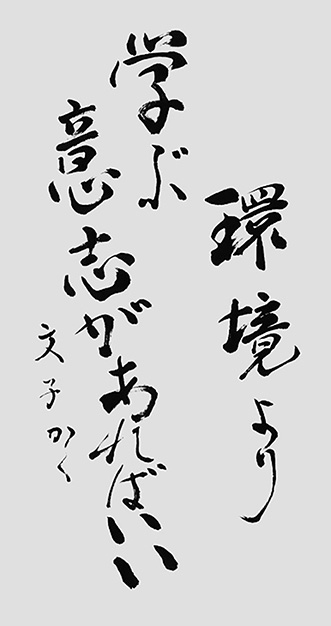 環境より
学ぶ
意志があればいい
文子かく